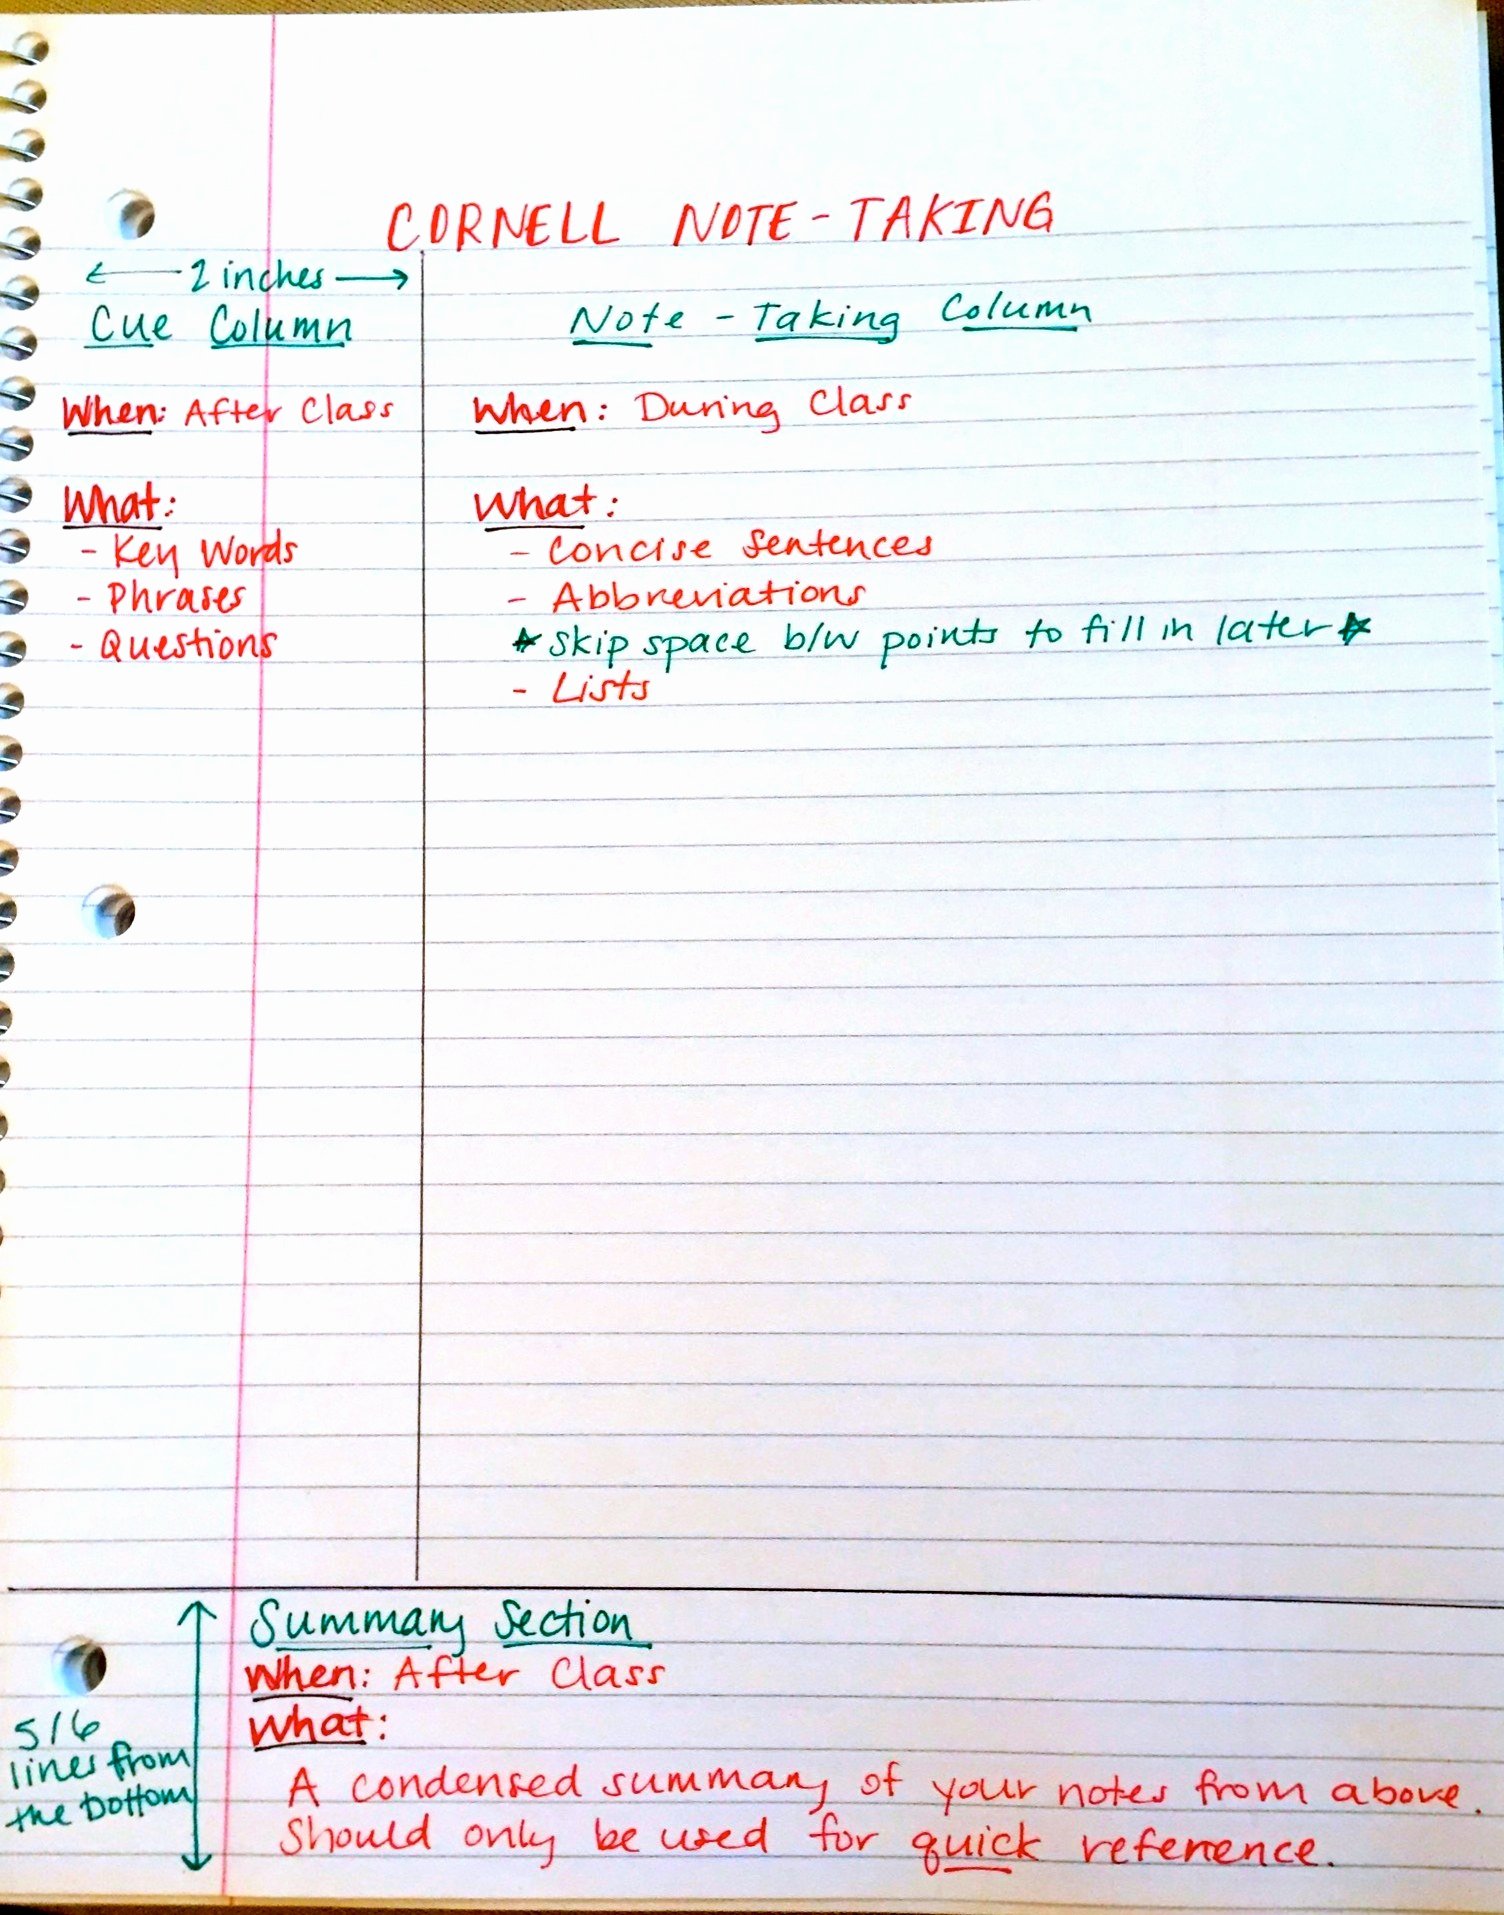 CORNELL NOTE-TAKING
← 2 inches →
Cue Column
When: After Class
What:
- Key Words
- Phrases
- Questions
Note-Taking Column
When: During Class
What:
- Concise Sentences
- Abbreviations
★ Skip space b/w points to fill in later ★
- Lists
Summary Section
When: After Class
What:
A condensed summary of your notes from above.
Should only be used for quick reference.
5/6
lines from
the bottom